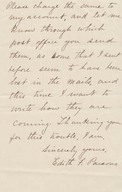 Please charge the same to
my account, and let me
know through which
post office you send
them, as some that I sent
before seem to have been
lost in the mails, and
this time I want to
write how they are
coming. Thanking you
for this trouble, I am,
Sincerely yours,
Edith L. Parsons